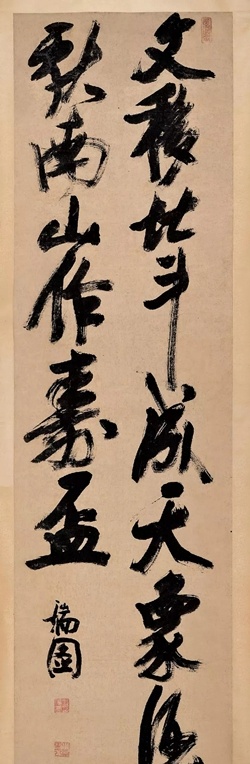 文移北斗成天象酒
南山作壽盃
瑞圖